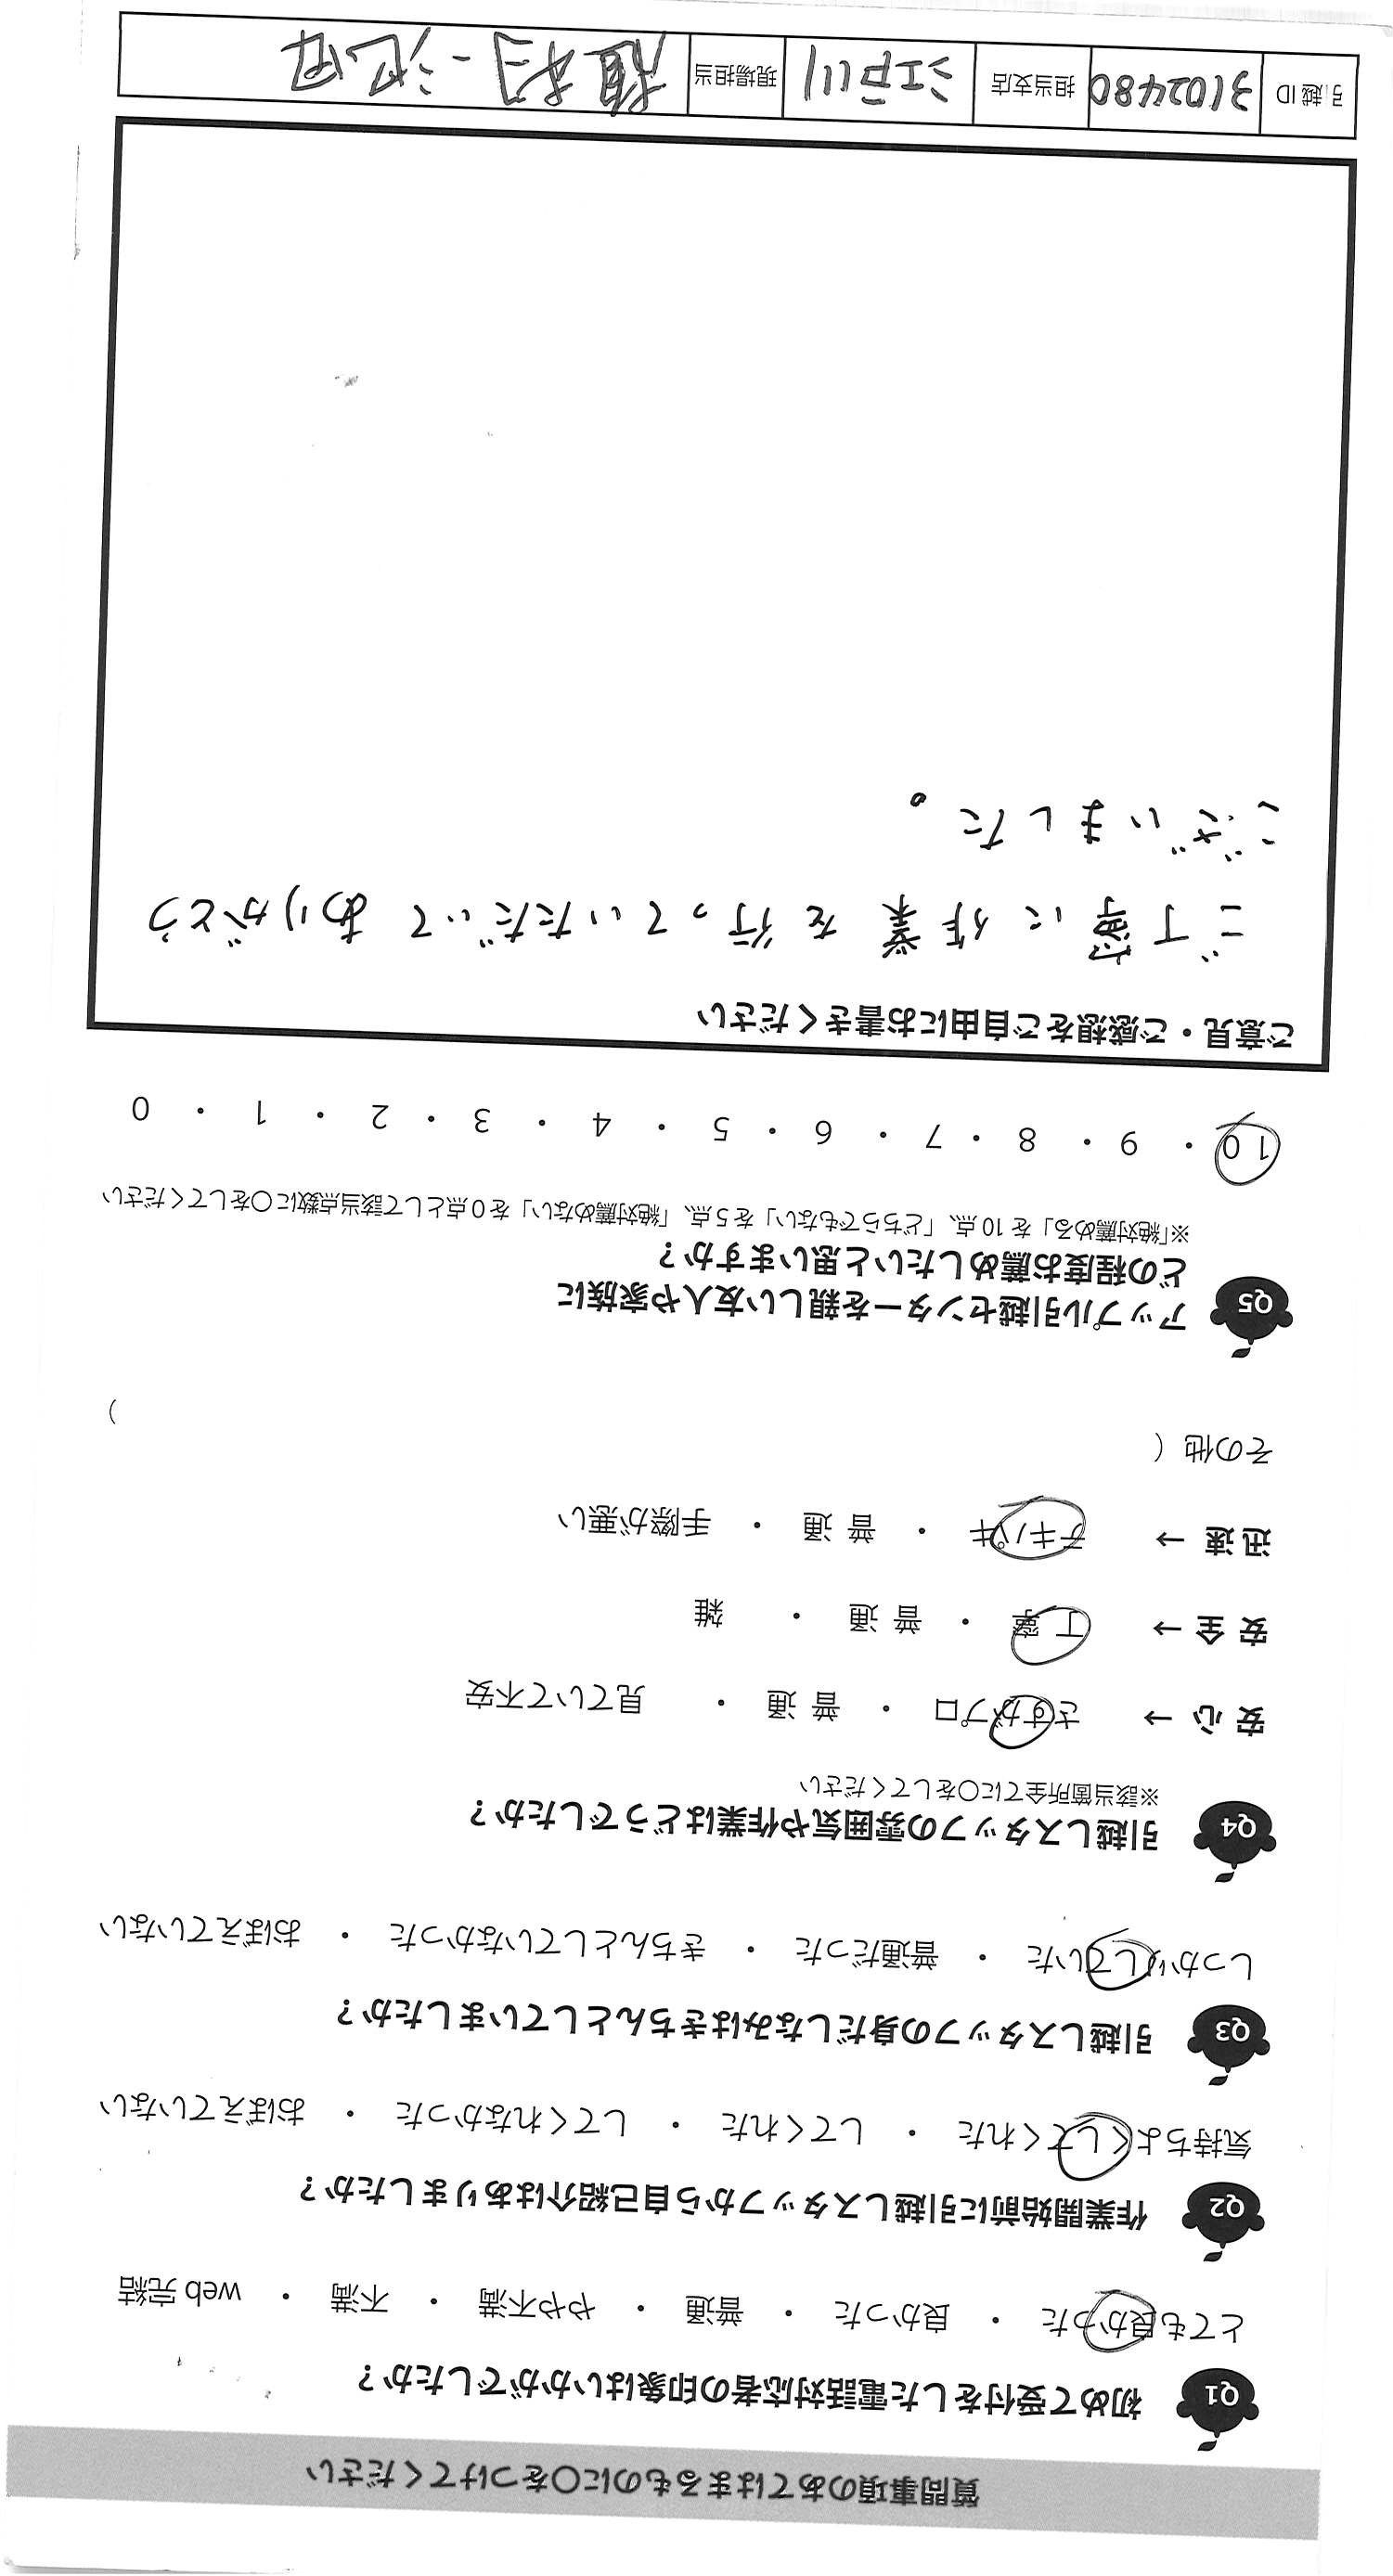 質問事項のあてはまるものに〇をつけてください
Q1 初めて受付をした電話対応者の印象はいかがでしたか？
とても良かった ・ 良かった ・ 普通 ・ やや不満 ・ 不満 ・ web 完結
Q2 作業開始前に引越しスタッフから自己紹介はありましたか？
気持ちよくしてくれた ・ してくれた ・ してくれなかった ・ おぼえていない
Q3 引越しスタッフの身だしなみはきちんとしていましたか？
しっかりしていた ・ 普通だった ・ きちんとしていなかった ・ おぼえていない
Q4 引越しスタッフの雰囲気や作業はどうでしたか？
※該当箇所全てに〇をしてください
安 心 → さすがプロ ・ 普 通 ・ 見ていて不安
安 全 → 丁 寧 ・ 普 通 ・ 雑
迅 速 → テキパキ ・ 普 通 ・ 手際が悪い
その他（ ）
Q5 アップル引越センターを親しい友人や家族に
どの程度お薦めしたいと思いますか？
※「絶対薦める」を 10 点、「どちらでもない」を 5 点、「絶対薦めない」を 0 点として該当点数に〇をしてください
10 ・ 9 ・ 8 ・ 7 ・ 6 ・ 5 ・ 4 ・ 3 ・ 2 ・ 1 ・ 0
ご意見・ご感想をご自由にお書きください
ご丁寧に作業を行っていただいてありがとう
ございました。
引越 ID 3102480 担当支店 江戸川 現場担当 植村-池田